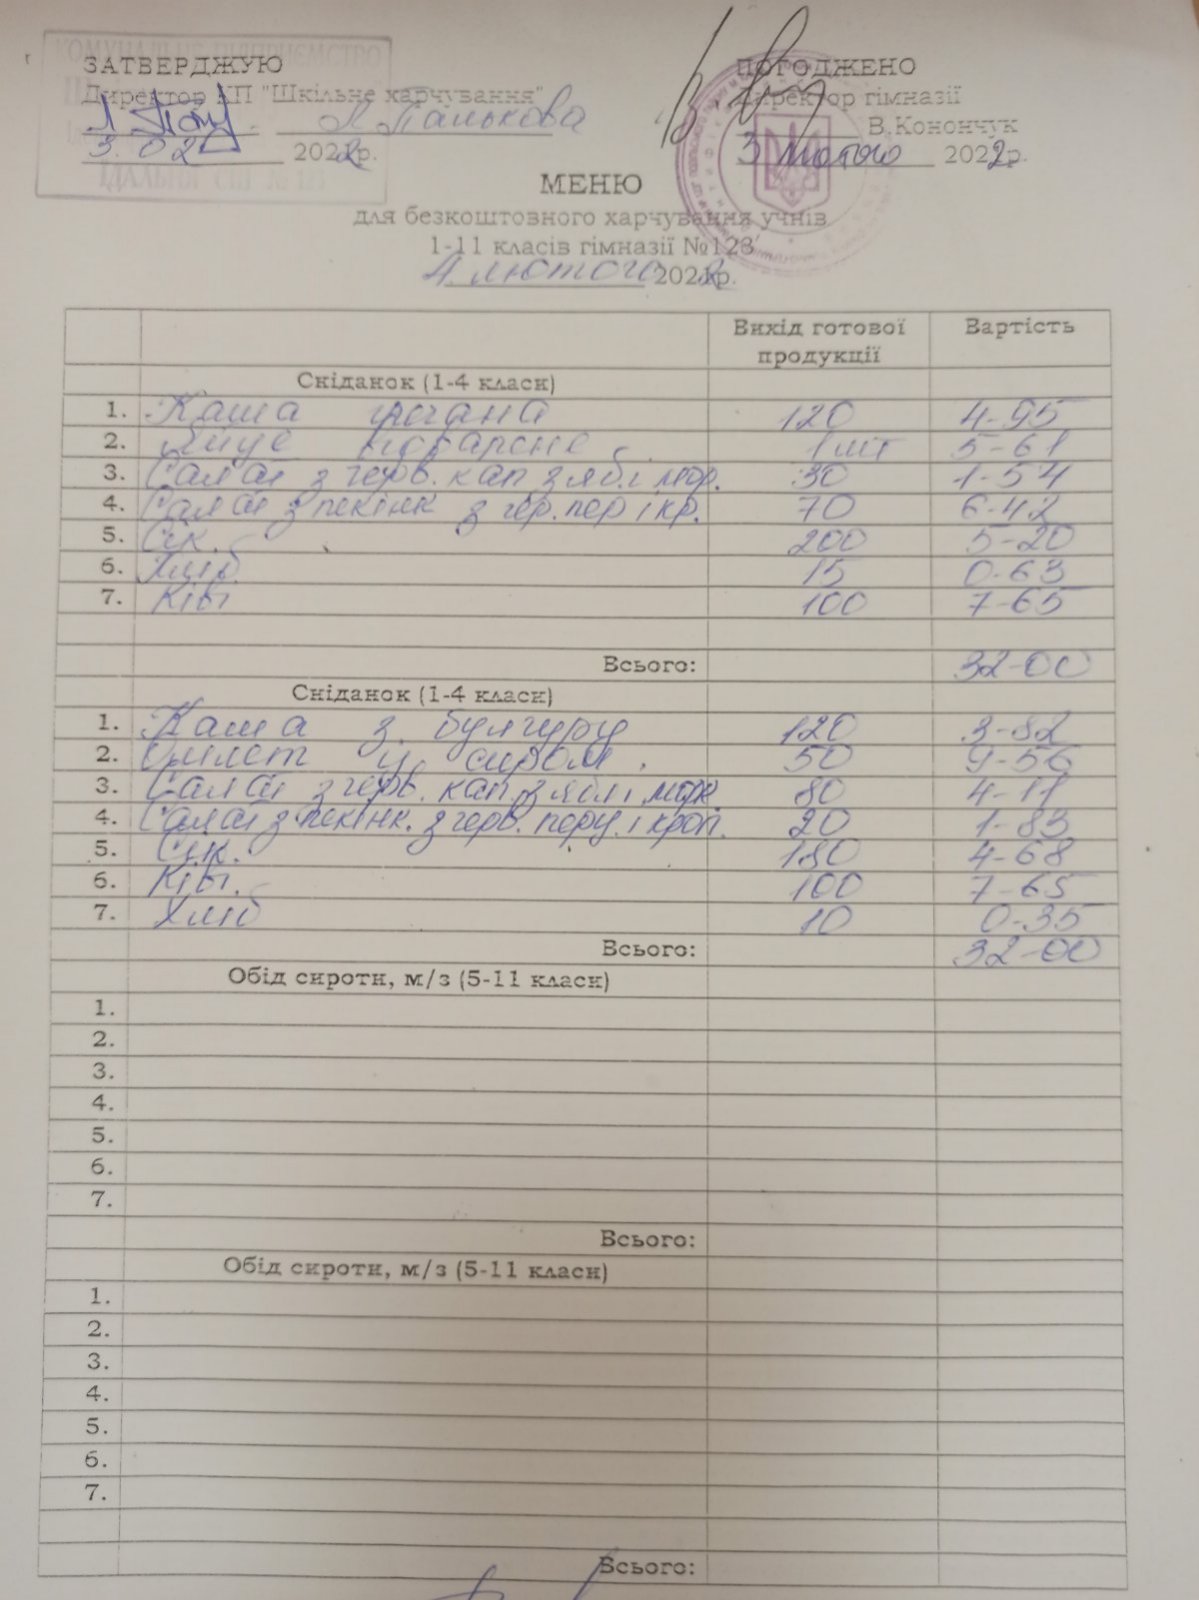 КОМУНАЛЬНЕ ПІДПРИЄМСТВО
ЗАТВЕРДЖУЮ
Директор КП "Шкільне харчування"
Л. Панькова
3.02 2022р.
ЇДАЛЬНЯ СШ № 123
ПОГОДЖЕНО
Директор гімназії
В.Конончук
3 лютого 2022р.
МЕНЮ
для безкоштовного харчування учнів
1-11 класів гімназії №123
4 лютого 2022р.
Вихід готової продукції Вартість
Сніданок (1-4 класи)
1. Каша 120 4-95
2. Яйце відварене 1 шт 5-61
3. Салат з черв. кап з ябл і мор. 30 1-54
4. Салат з пекінк з чер. пер і кр. 70 6-42
5. Сік. 200 5-20
6. Хліб 15 0-63
7. Ківі 100 7-65
Всього: 32-00
Сніданок (1-4 класи)
1. Каша з булгуру 120 3-82
2. Омлет із сиром. 50 9-56
3. Салат з черв. кап. з ябл і морк. 80 4-11
4. Салат з пекінк. з черв. перц. і кроп. 20 1-83
5. Сік. 180 4-68
6. Ківі. 100 7-65
7. Хліб 10 0-35
Всього: 32-00
Обід сироти, м/з (5-11 класи)
1.
2.
3.
4.
5.
6.
7.
Всього:
Обід сироти, м/з (5-11 класи)
1.
2.
3.
4.
5.
6.
7.
Всього: